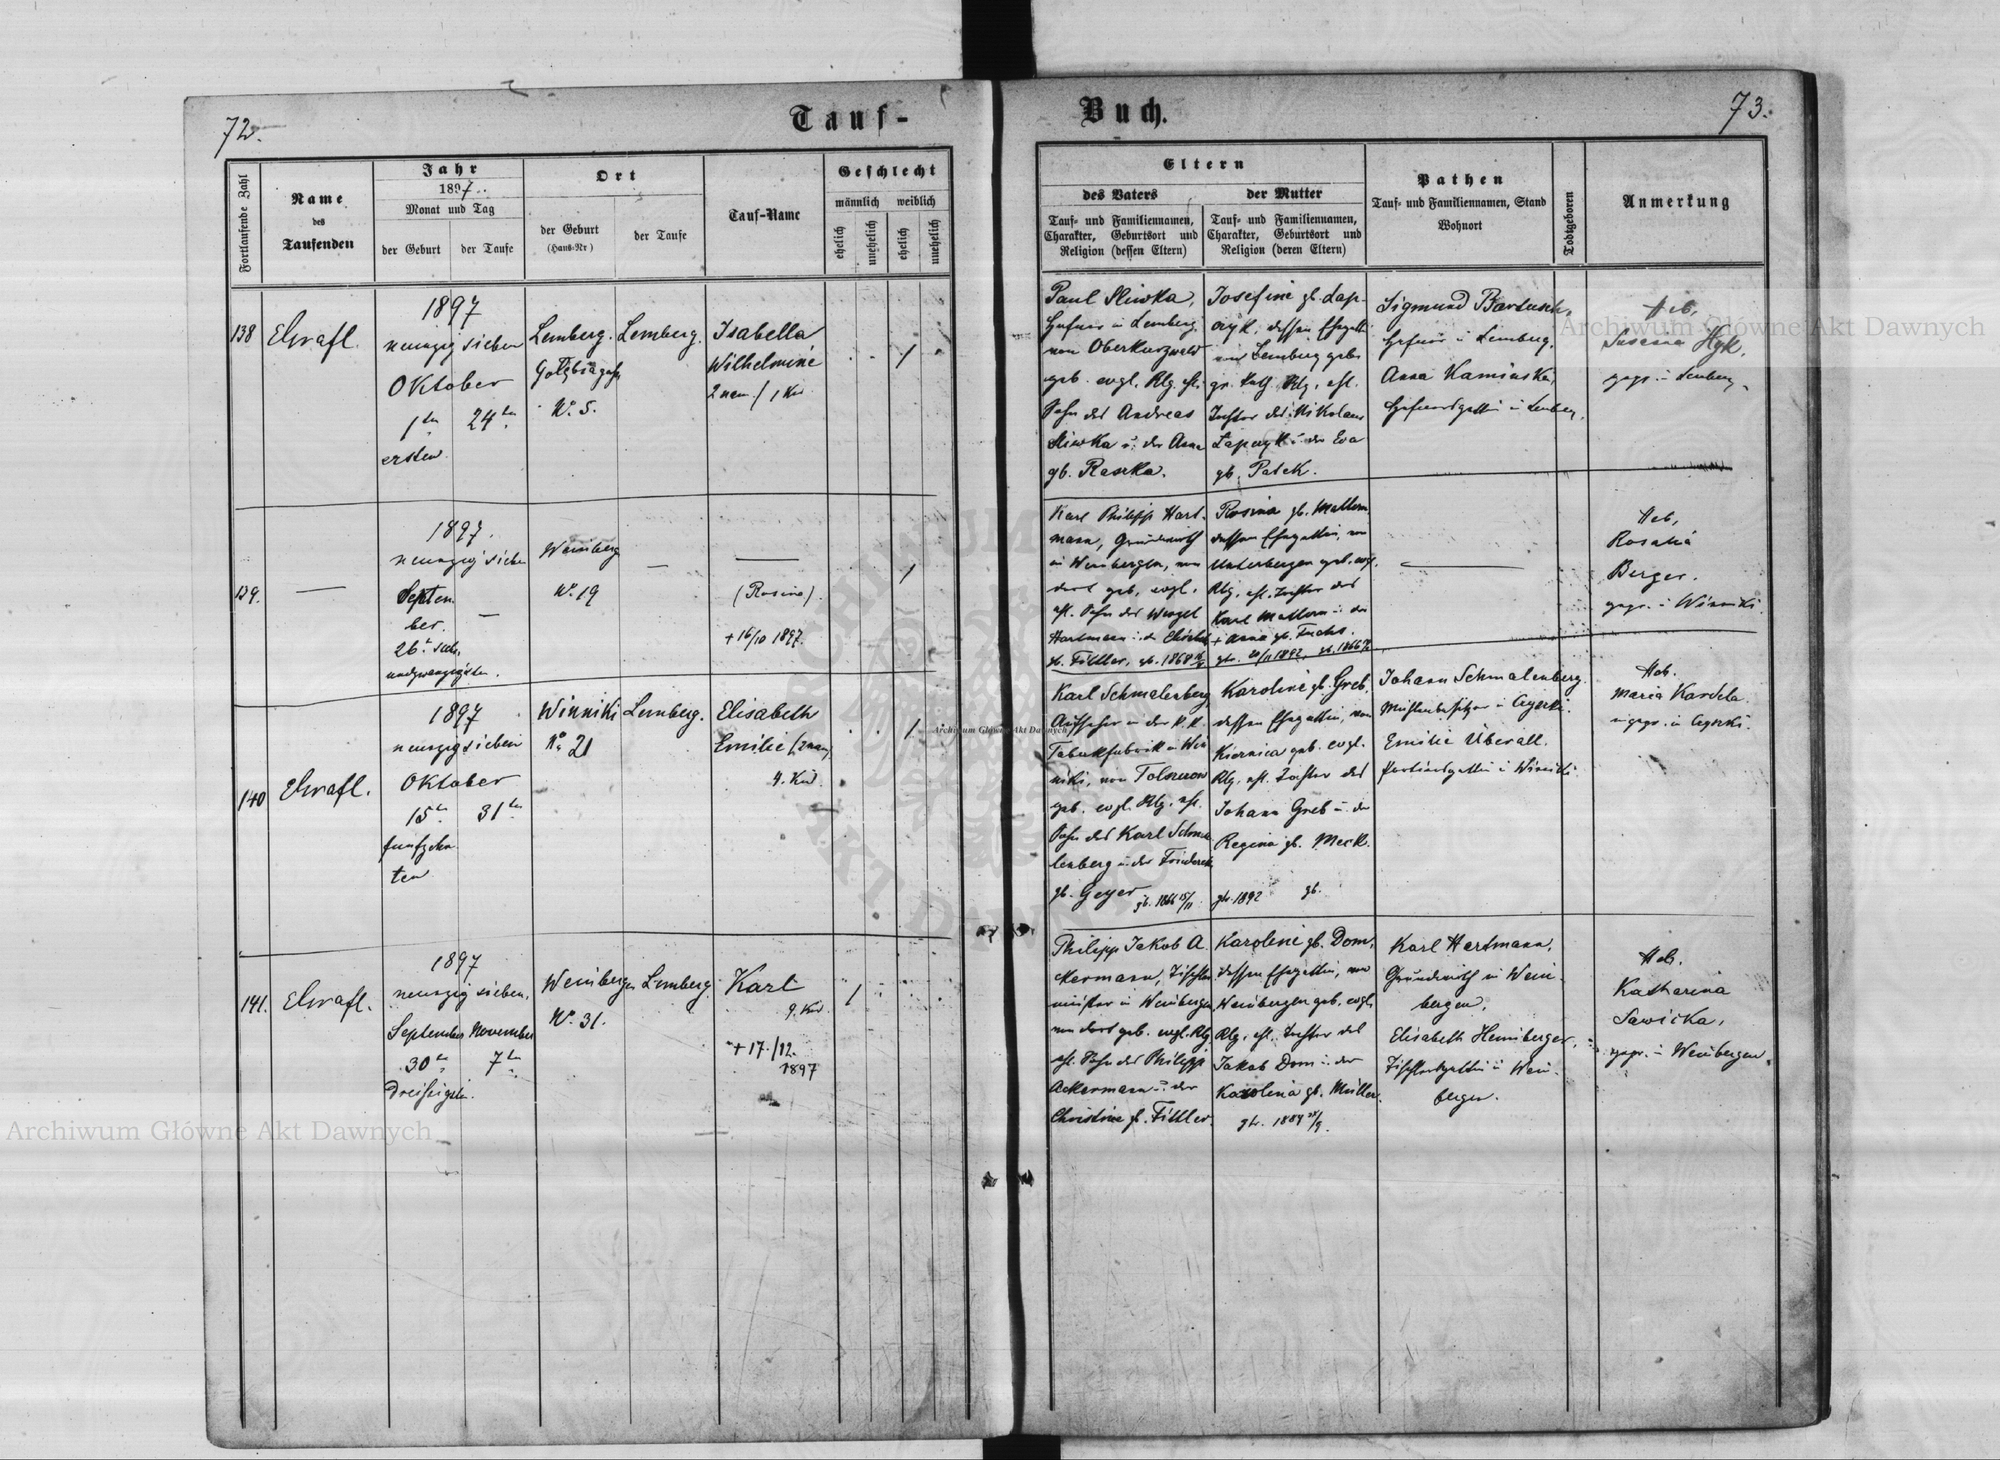 72.
Tauf-
Fortlaufende Zahl
Name
des
Taufenden
Jahr
1897..
Monat und Tag
der Geburt
der Taufe
Ort
der Geburt
(Haus-Nr)
der Taufe
Tauf-Name
Geschlecht
männlich weiblich
ehelich
unehelich
ehelich
unehelich
138
1897
neunzig sieben
Oktober
1ten 24ten
ersten
Lemberg.
No. 5.
Lemberg.
Isabella
Wilhelmine
1
139.
1897.
neunzig sieben
Septem
ber.
26
Weinberg
No. 19
(Rosina)
+ 16/10 1897.
1
140
1897
neunzig sieben
Oktober
15. 31.
fünfzehn
ten
Winniki
No. 21
Lemberg.
Elisabeth
Emilie
4. Kind.
1
141.
1897
neunzig sieben.
September November
30 7
Dreißigsten.
Weinbergen
No. 31.
Lemberg.
Karl
9. Kind.
+ 17./12.
1897
1
Buch.
73.
Eltern
des Vaters
Tauf- und Familiennamen,
Charakter, Geburtsort und
Religion (dessen Eltern)
der Mutter
Tauf- und Familiennamen,
Charakter, Geburtsort und
Religion (deren Eltern)
Pathen
Tauf- und Familiennamen, Stand
Wohnort
Todtgeboren
Anmerkung
Paul Sliwka,
in Lemberg,
von Oberkurzwald
geb. evgl. Rlg. ehl.
Sohn des Andreas
Sliwka u. der Anna
gb. Raszka.
Josefine gb. Lap-
czyk, dessen Ehegattin
Tochter des Nikolaus
Lapczyk u. der Eva
gb. Patek.
Sigmund Bartusch,
in Lemberg.
Anna Kaminska,
in Lemberg.
Heb.
Susanna Hyk,
gepr. in Lemberg.
Karl Philipp Hart-
mann, Grundwirth
in Weinbergen, von
dort geb. evgl.
ehl. Sohn des Wenzel
Hartmann u. d. Elisabeth
gb. Fittler, gb. 1868
Rosina gb. Mattern
dessen Ehegattin, von
Unterbergen geb. evgl.
Rlg. ehl. Tochter des
Karl Mattern u. der
+ Anna gb. Fuchs.
gtr. 20/11 1892, gb. 1866
Heb.
Rosalia
Berger.
gepr. in Winniki.
Karl Schmalenberg,
Aufseher in der k. k.
Tabakfabrik in Win
niki, von
geb. evgl. Rlg. ehl.
Sohn des Karl Schma
lenberg u. der Friederike
gb. Geyer gb. 1866 15/11
Karoline gb. Greb,
dessen Ehegattin, von
Kiernica geb. evgl.
Rlg. ehl. Tochter des
Johann Greb u. der
Regina gb. Meck.
gtr. 1892 gb.
Johann Schmalenberg.
Mühlenbesitzer in
Emilie Überall.
in Winniki.
Heb.
Maria Kardela
Philipp Jakob A
ckermann, Tischler
meister in Weinbergen,
von dort geb. evgl. Rlg.
ehl. Sohn des Philipp
Ackermann u. der
Christine gb. Fittler.
Karoline gb. Dom,
dessen Ehegattin, von
Weinbergen geb. evgl.
Rlg. ehl. Tochter des
Jakob Dom u. der
Karolina gb. Müller.
gtr. 1884
Karl Hartmann,
Grundwirth in Wein-
bergen.
Elisabeth Heinberger,
Tischlersgattin in Wein-
bergen.
Heb.
Katharina
Sawicka,
gepr. in Weinbergen.
Archiwum Główne Akt Dawnych
Archiwum Główne Akt Dawnych
Archiwum Główne Akt Dawnych